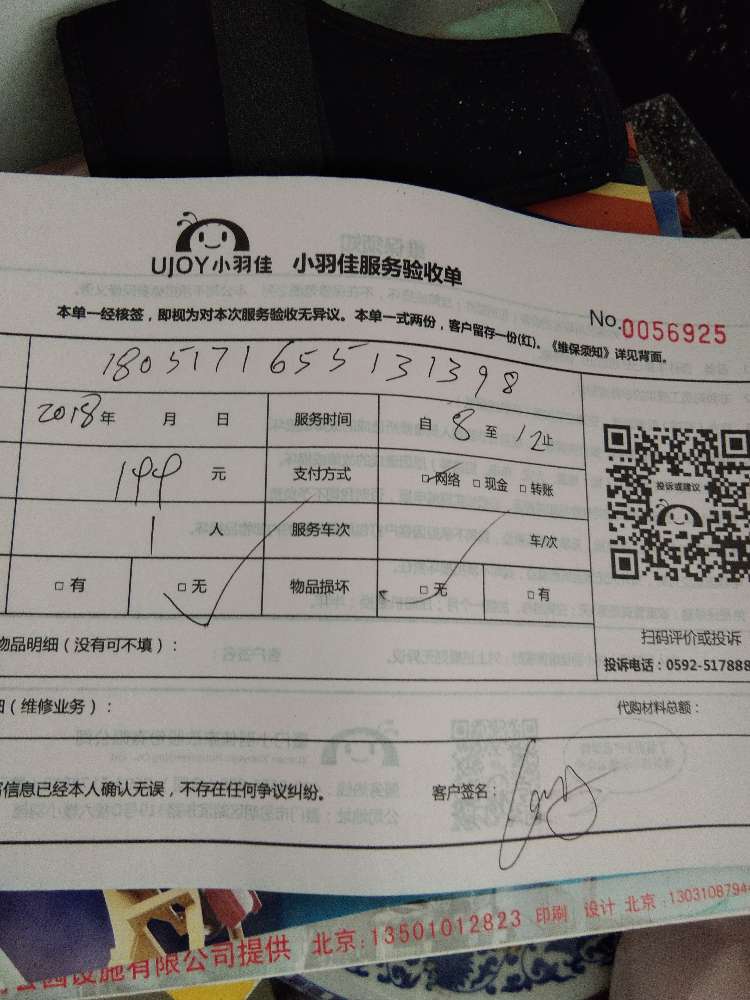 UJOY小羽佳 小羽佳服务验收单
No.0056925
本单一经核签，即视为对本次服务验收无异议。本单一式两份，客户留存一份(红)。《维保须知》详见背面。
180517165513398
2018年 月 日 服务时间 自 8 至 12止
144 元 支付方式 □网络 □现金 □转账
1 人 服务车次 车/次
□有 □无 物品损坏 □无 □有
投诉或建议
扫码评价或投诉
投诉电话：0592-517888
物品明细（没有可不填）：
（维修业务）： 代购材料总额：
信息已经本人确认无误，不存在任何争议纠纷。 客户签名：
设施有限公司提供 北京:13501012823 印刷 设计 北京:1303108794